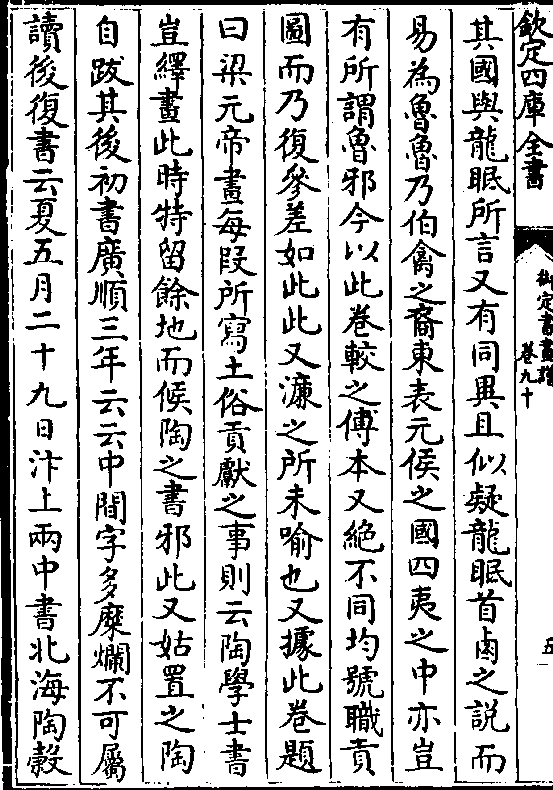 欽定四庫全書
御定書畫譜
卷九十
五
其國與龍眠所言又有同異且似疑龍眠首鹵之說而
易為魯魯乃伯禽之裔東表元侯之國四夷之中亦豈
有所謂魯邪今以此卷較之傅本又絕不同均號職貢
圖而乃復參差如此此又濂之所未喻也又據此卷題
曰梁元帝畫每段所寫土俗貢獻之事則云陶學士書
豈繹畫此時特留餘地而候陶之書邪此又姑置之陶
自跋其後初書廣順三年云云中間字多糜爛不可屬
讀後復書云夏五月二十九日汴上兩中書北海陶榖